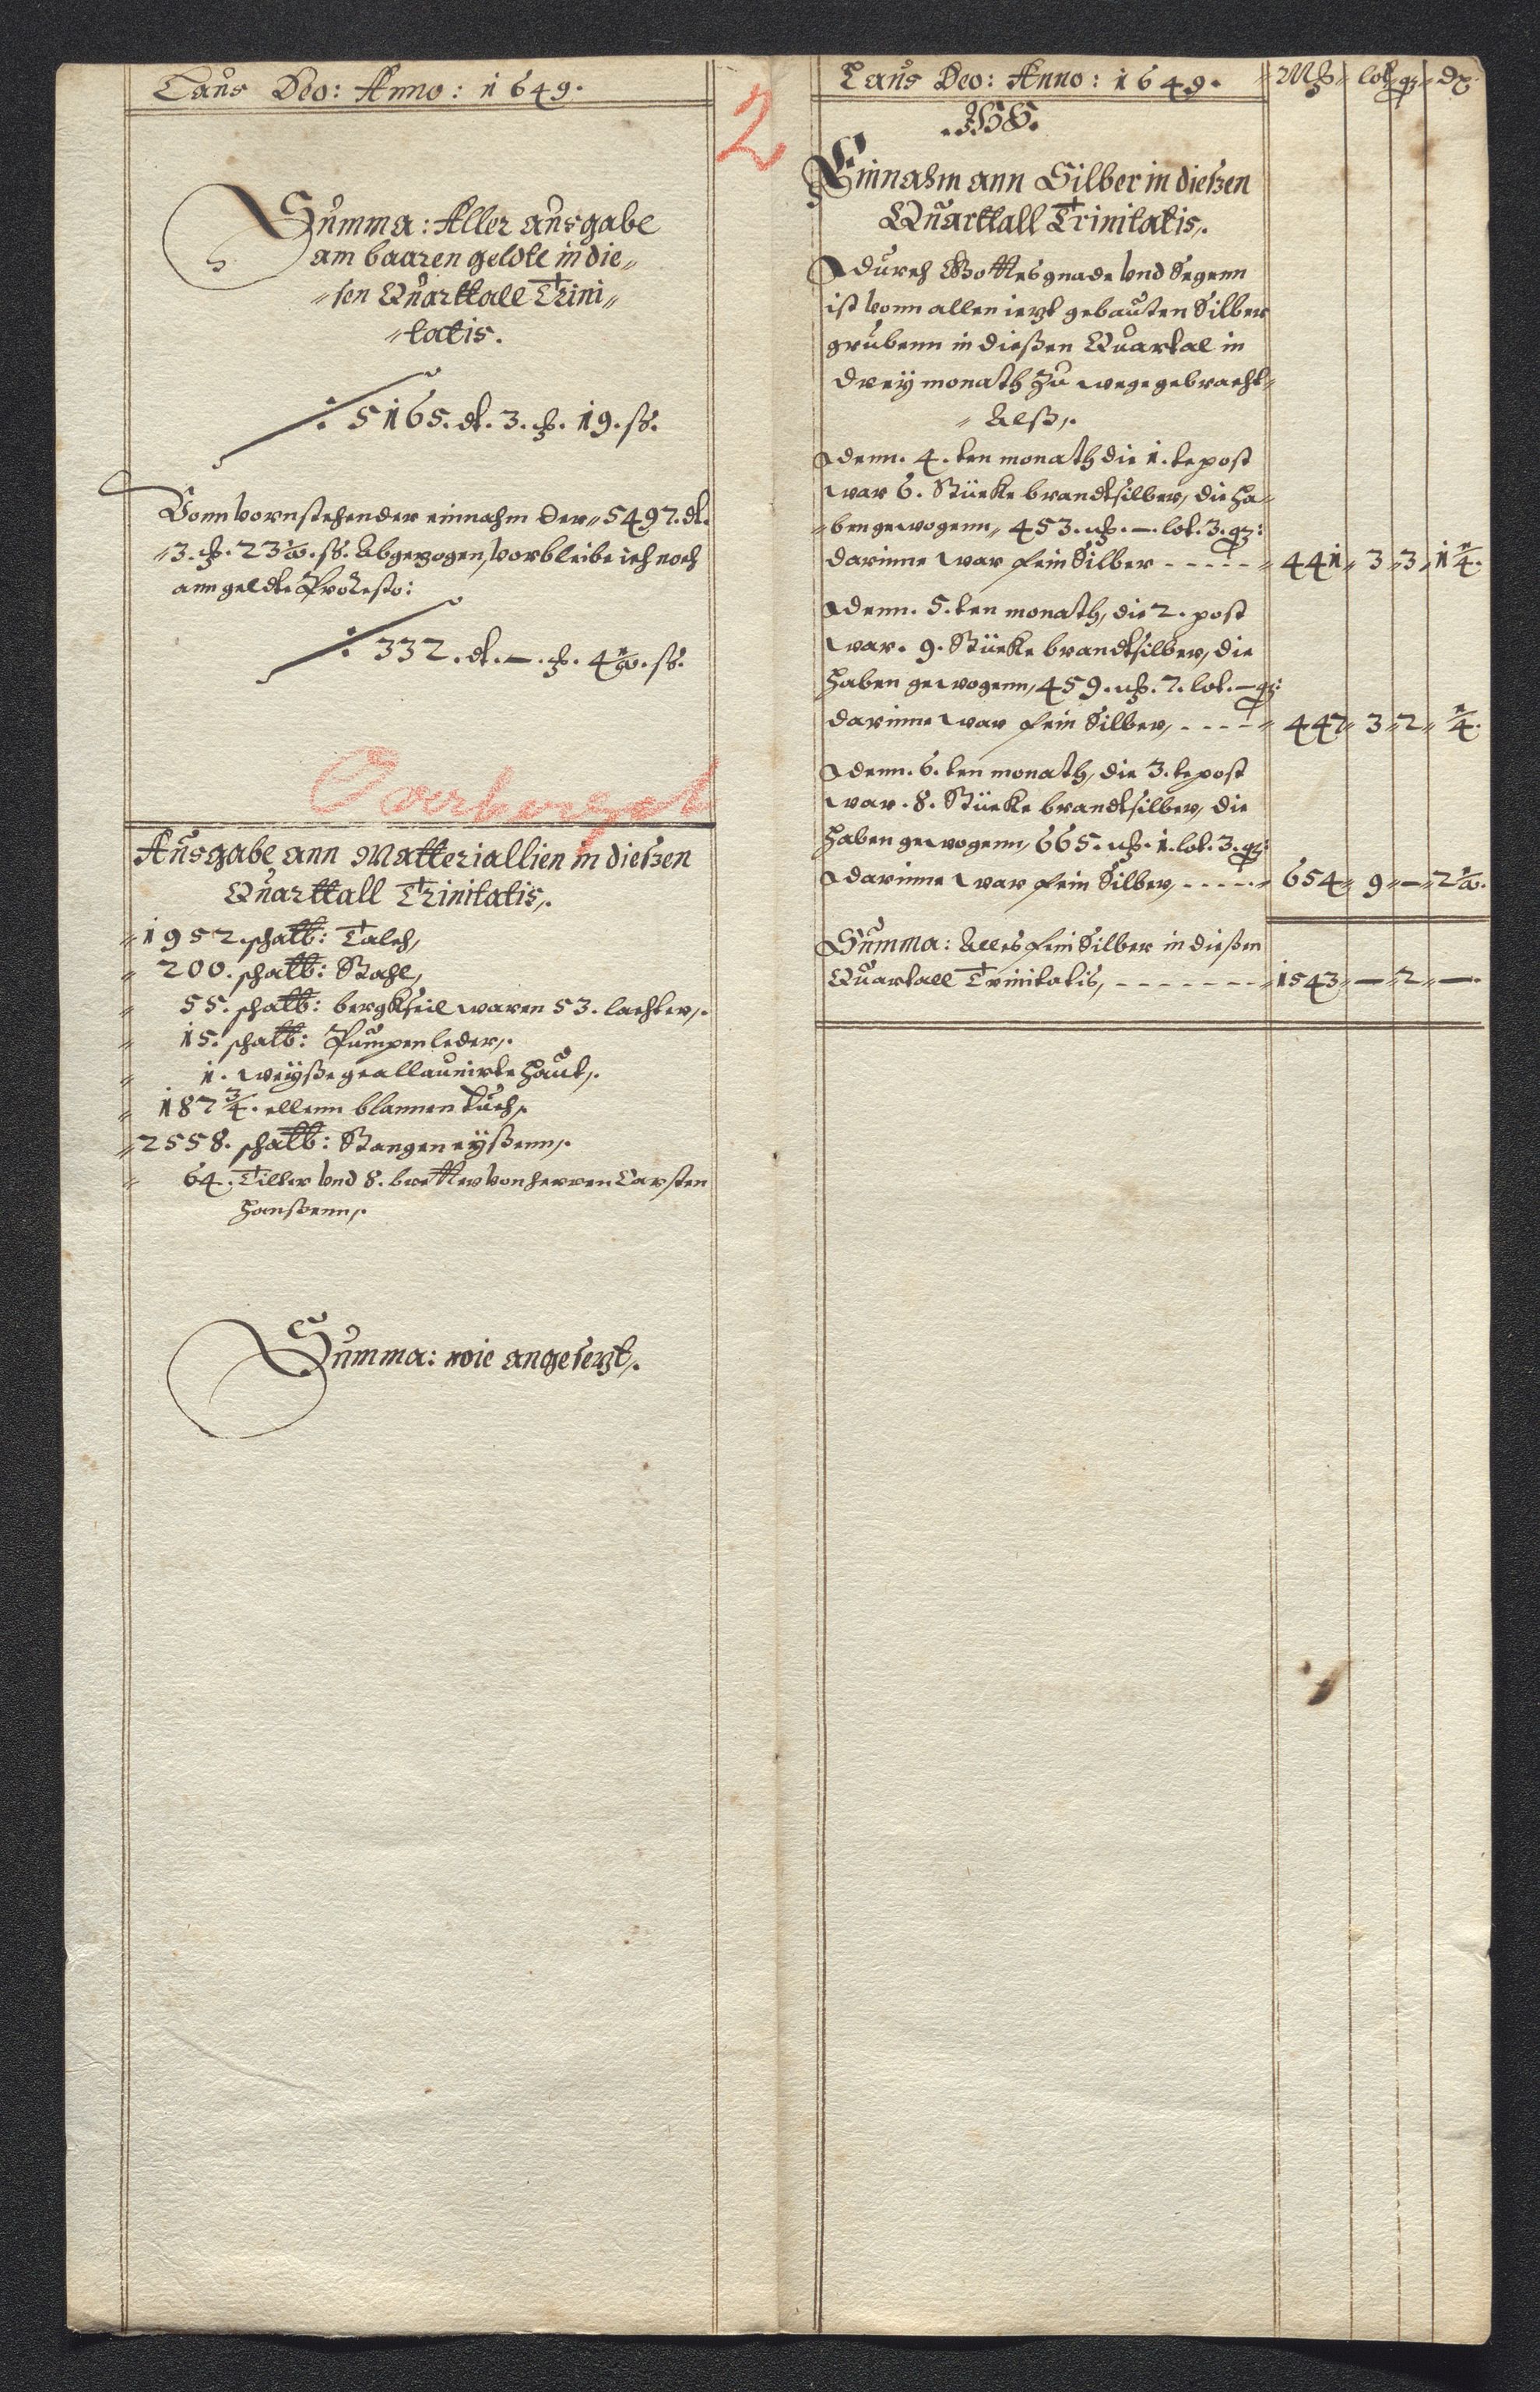 Laus Deo: Anno: 1649.
Summa: Aller ausgabe
am baaren geldte in die„
„sen Quarttall Trini„
„tatis.
5165. dt. 3. ß. 19. ß.
Vonn vornstehender einnahm der „5497. dt.
„3. 23½. ß. Abgezogen, vorbleibe ich noch
ann geldte Proresto:
332. dt. — . 4½. ß.
Overberget
Ausgabe ann Matteriallien in dießen
Quarttall Trinitatis,.
„1952. schalb: Talch,
„200. schalb: Stahl,
„55. schalb: bergkseil waren 53. lachter,.
„15. schalb: Pumpenleder,.
„1. weyße geallaunirte Haut,.
„187¾. ellenn tuch,.
„2558. schalb: Stangen eyßenn,.
„64. Tiller vnd 8. bretter von herren Carsten
Hanßenn,.
Summa: wie angesezt,.
2
Laus Deo: Anno: 1649. lot qz
Einnahm ann Silber in dießen
Quarttall Trinitatis,.
durch Gottes gnade vnd Segenn
ist vonn allen iezt gebauten Silber
grubenn in dießen Quartal in
drey monath zu wege gebracht„
„Alß,.
denn. 4. ten monath die 1. te post
war 6. Stücke brandtsilber, die ha„
„ben gewogenn, 453. — . lot. 3. qz:
darinne war fein Silber - - - - - 441 „ 3 „ 3 „ 1¼.
denn. 5. ten monath, die 2. post
war. 9. Stücke brandtsilber, die
haben gewogenn, 459. 7. lot. — qz:
darinne war fein Silber, - - - - 447 „ 3 „ 2 „ ¼.
denn. 6. ten monath, die 3. te post
war. 8. Stücke brandtsilber, die
haben gewogenn, 665. 1. lot. 3. qz:
darinne war fein Silber, - - - - 654 „ 9 „ — „ 2½.
Summa: Alles fein Silber in dießen
Quartall Trinitatis, - - - - - - - 1543 „ — „ 2 „ — .